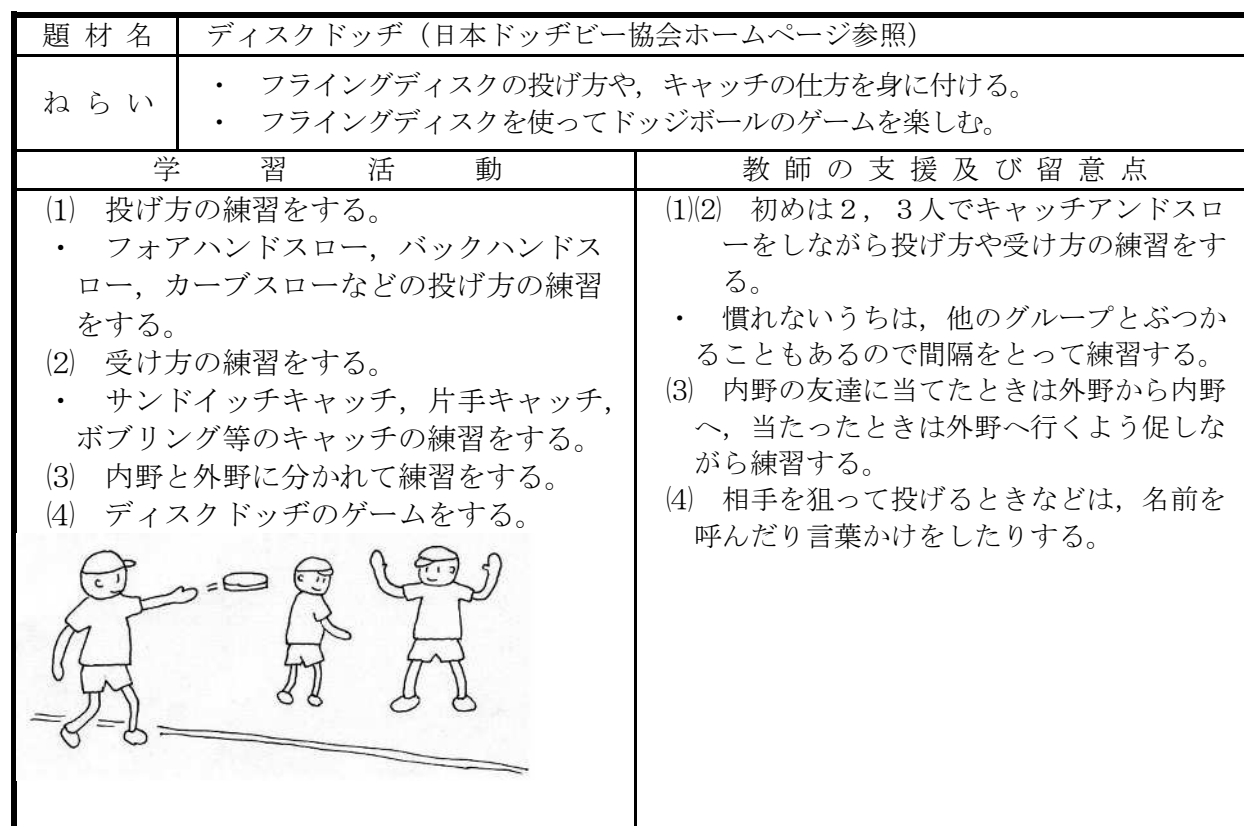 題材名 ディスクドッヂ（日本ドッヂビー協会ホームページ参照）
ねらい
・ フライングディスクの投げ方や，キャッチの仕方を身に付ける。
・ フライングディスクを使ってドッジボールのゲームを楽しむ。
学習活動
⑴ 投げ方の練習をする。
・ フォアハンドスロー，バックハンドス
ロー，カーブスローなどの投げ方の練習
をする。
⑵ 受け方の練習をする。
・ サンドイッチキャッチ，片手キャッチ，
ボブリング等のキャッチの練習をする。
⑶ 内野と外野に分かれて練習をする。
⑷ ディスクドッヂのゲームをする。
教師の支援及び留意点
⑴⑵ 初めは２，３人でキャッチアンドスロ
ーをしながら投げ方や受け方の練習をす
る。
・ 慣れないうちは，他のグループとぶつか
ることもあるので間隔をとって練習する。
⑶ 内野の友達に当てたときは外野から内野
へ，当たったときは外野へ行くよう促しな
がら練習する。
⑷ 相手を狙って投げるときなどは，名前を
呼んだり言葉かけをしたりする。